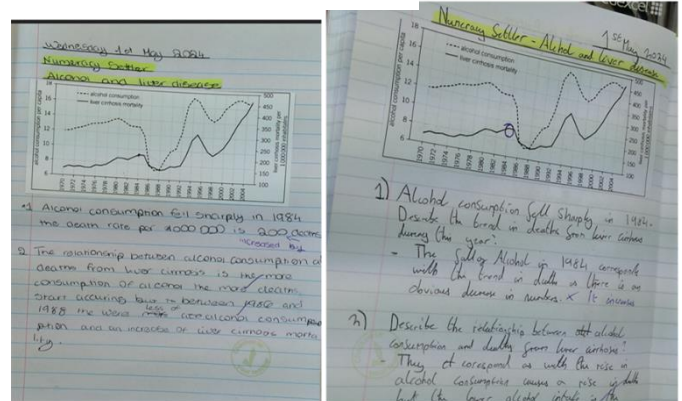 Wednesday 1st May 2024
Numeracy Settler
Alcohol and liver disease
18
16
14
12
10
8
6
alcohol consumption per capita
alcohol consumption
liver cirrhosis mortality
500
450
400
350
300
250
200
150
100
liver cirrhosis mortality per
1 000 000 inhabitants
1970
1972
1974
1976
1978
1980
1982
1984
1986
1988
1990
1992
1994
1996
1998
2000
2002
2004
1 Alcohol consumption fell sharply in 1984
the death rate per 1000 000 is 200 deaths
increased by
2 The relationship between alcohol consumption a
deaths from liver cirrhosis is the more
consumption of alcohol the more deaths
start occuring between 1986 and
1988 the were less of alcohol consump
ption and an increase of liver cirrhosis morta
lity.
Numeracy Settler - Alchol and liver disease
1st May 2024
18
16
14
12
10
8
6
alcohol consumption per capita
alcohol consumption
liver cirrhosis mortality
500
450
400
350
300
250
200
150
100
1970
1972
1974
1976
1978
1980
1982
1984
1986
1988
1990
1992
1994
1996
1998
2000
2002
2004
1) Alcohol consumption fell sharply in 1984.
Describe the trend in deaths from liver cirrhosis
during this year?
- The fall of Alcohol in 1984 corresponds
with the trend in deaths as there is an
obvious decrease in numbers. x It increase
2) Describe the relationship between alcohol
consumption and deaths from liver cirrhosis?
- They corespond as with the rise in
alcohol consumption causes a rise in deaths
but the lower alcohol intake is the